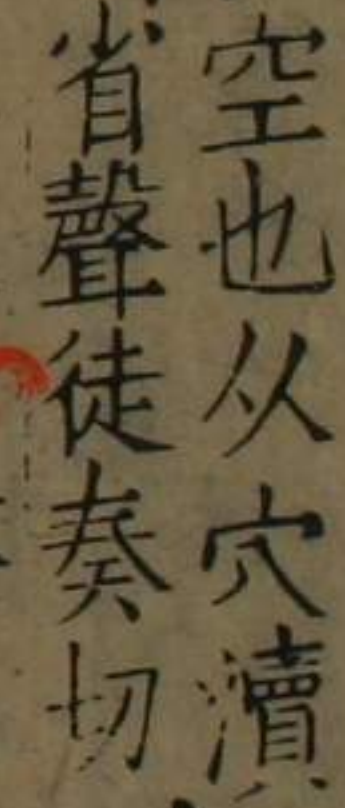 空也从穴瀆
省聲徒奏切